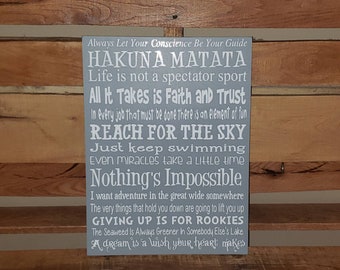 Always Let Your Conscience Be Your Guide
HAKUNA MATATA
Life is not a spectator sport
All It Takes is Faith and Trust
In every job that must be done there is an element of fun
REACH FOR THE SKY
Just keep swimming
Even miracles take a little time
Nothing's Impossible
I want adventure in the great wide somewhere
The very things that hold you down are going to lift you up
GIVING UP IS FOR ROOKIES
The Seaweed Is Always Greener In Somebody Else's Lake
A dream is a wish your heart makes